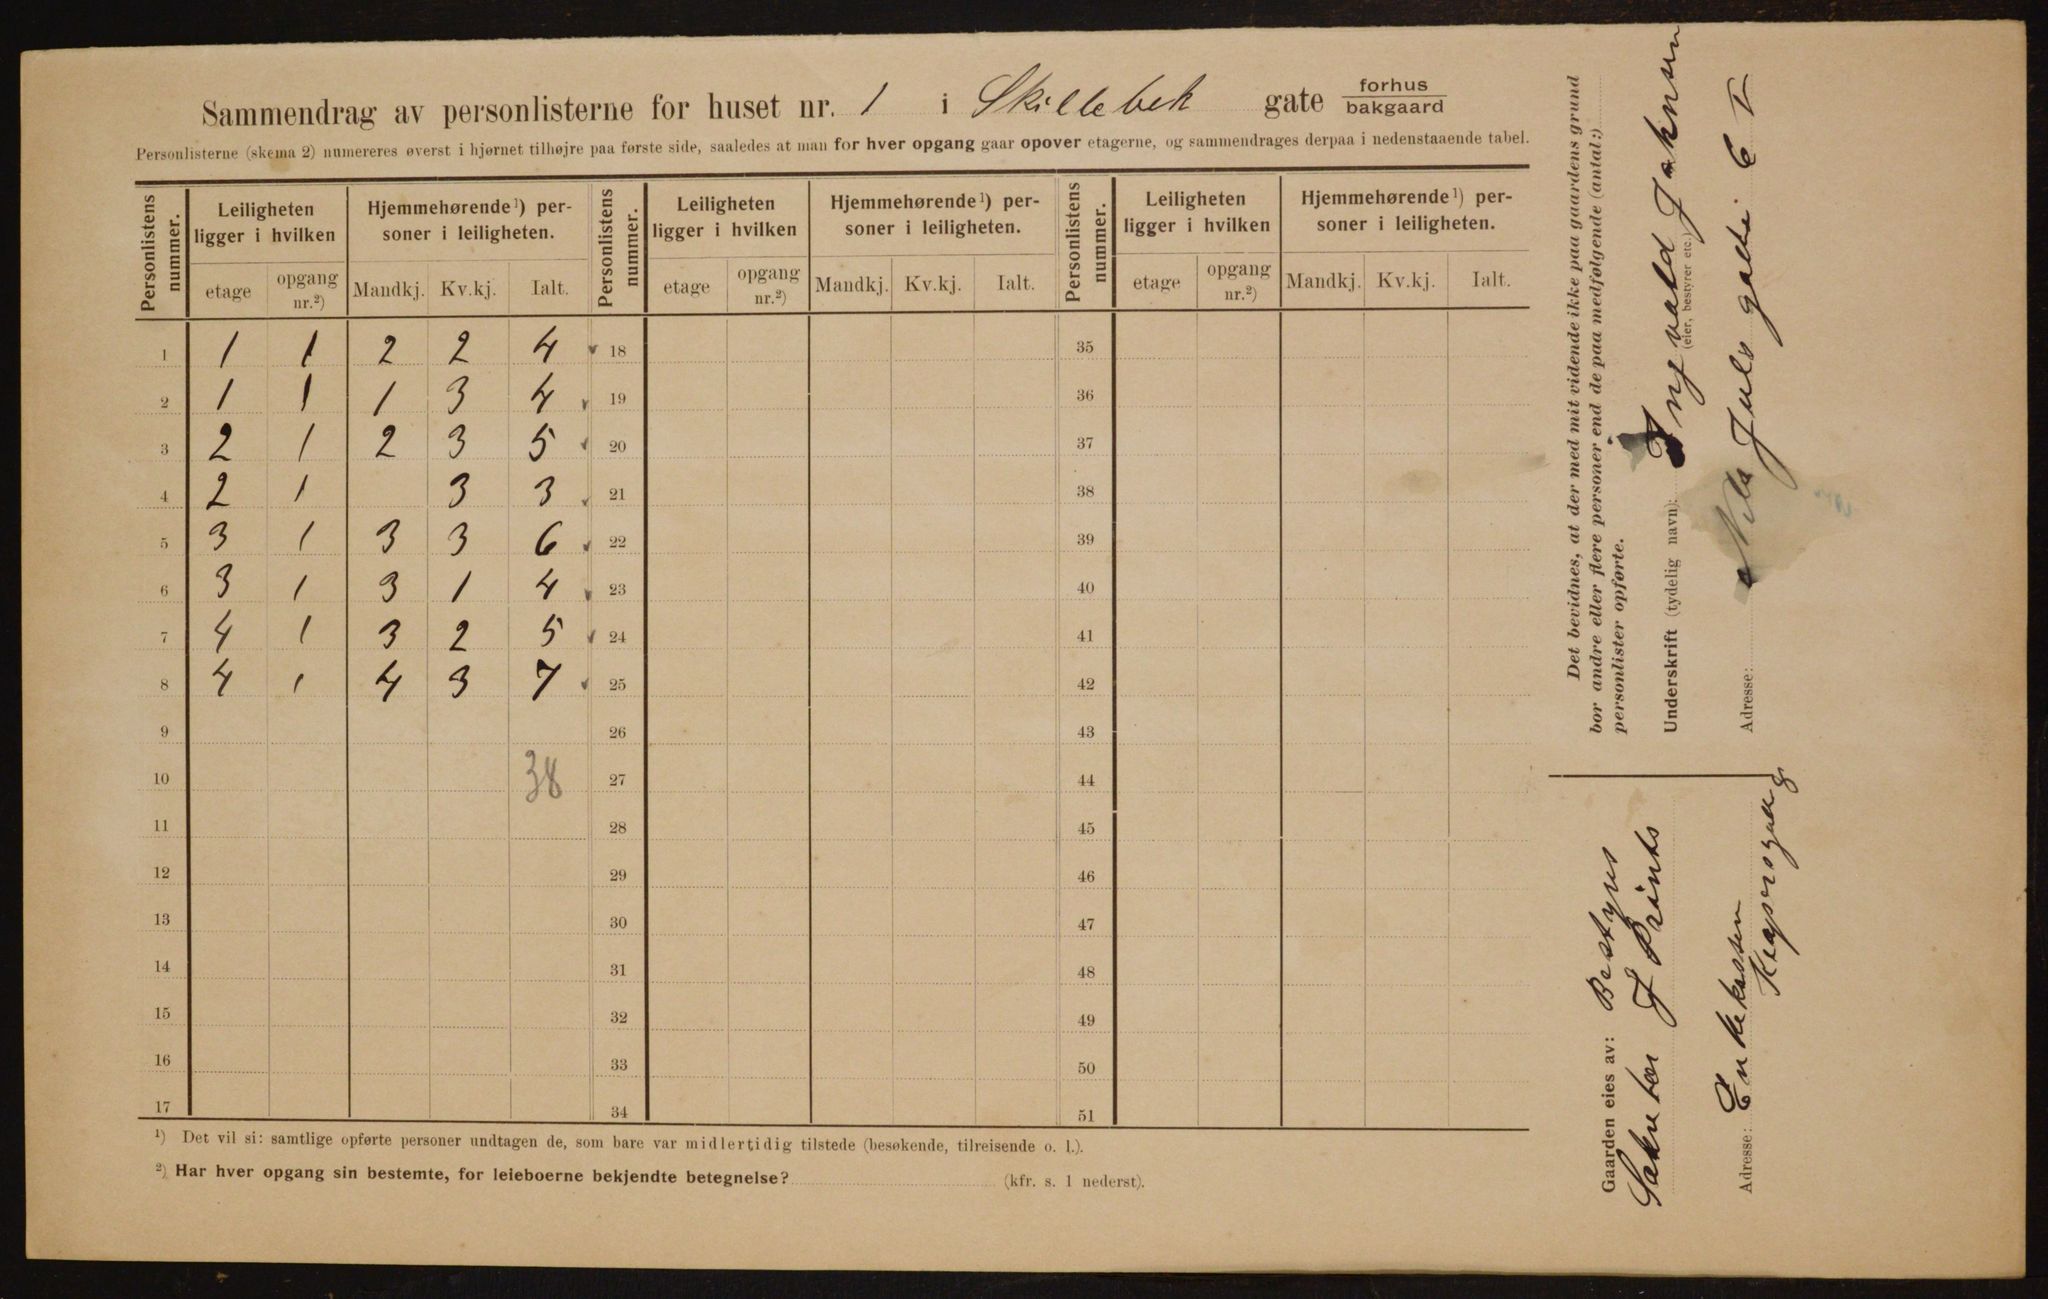 Sammendrag av personlisterne for huset nr. 1 i Skillebek gate forhus
bakgaard
Personlisterne (skema 2) numereres øverst i hjørnet tilhøjre paa første side, saaledes at man for hver opgang gaar opover etagerne, og sammendrages derpaa i nedenstaaende tabel.
Personlistens nummer. Leiligheten ligger i hvilken Hjemmehørende¹) personer i leiligheten. Personlistens nummer. Leiligheten ligger i hvilken Hjemmehørende¹) personer i leiligheten. Personlistens nummer. Leiligheten ligger i hvilken Hjemmehørende¹) personer i leiligheten.
etage opgang nr.²) Mandkj. Kv.kj. Ialt. etage opgang nr.²) Mandkj. Kv.kj. Ialt. etage opgang nr.²) Mandkj. Kv.kj. Ialt.
1 1 1 2 2 4 18 35
2 1 1 1 3 4 19 36
3 2 1 2 3 5 20 37
4 2 1 3 3 21 38
5 3 1 3 3 6 22 39
6 3 1 3 1 4 23 40
7 4 1 3 2 5 24 41
8 4 1 4 3 7 25 42
9 26 43
10 38 27 44
11 28 45
12 29 46
13 30 47
14 31 48
15 32 49
16 33 50
17 34 51
¹) Det vil si: samtlige opførte personer undtagen de, som bare var midlertidig tilstede (besøkende, tilreisende o. l.).
²) Har hver opgang sin bestemte, for leieboerne bekjendte betegnelse? (kfr. s. 1 nederst).
Det bevidnes, at der med mit vidende ikke paa gaardens grund
bor andre eller flere personer end de paa medfølgende (antal:)
personlister opførte.
Underskrift (tydelig navn): Ingvald
(eier, bestyrer etc.)
Adresse: Nils Juels
Gaarden eies av: Bestyrer
J Prints
Adresse: Enkekassen